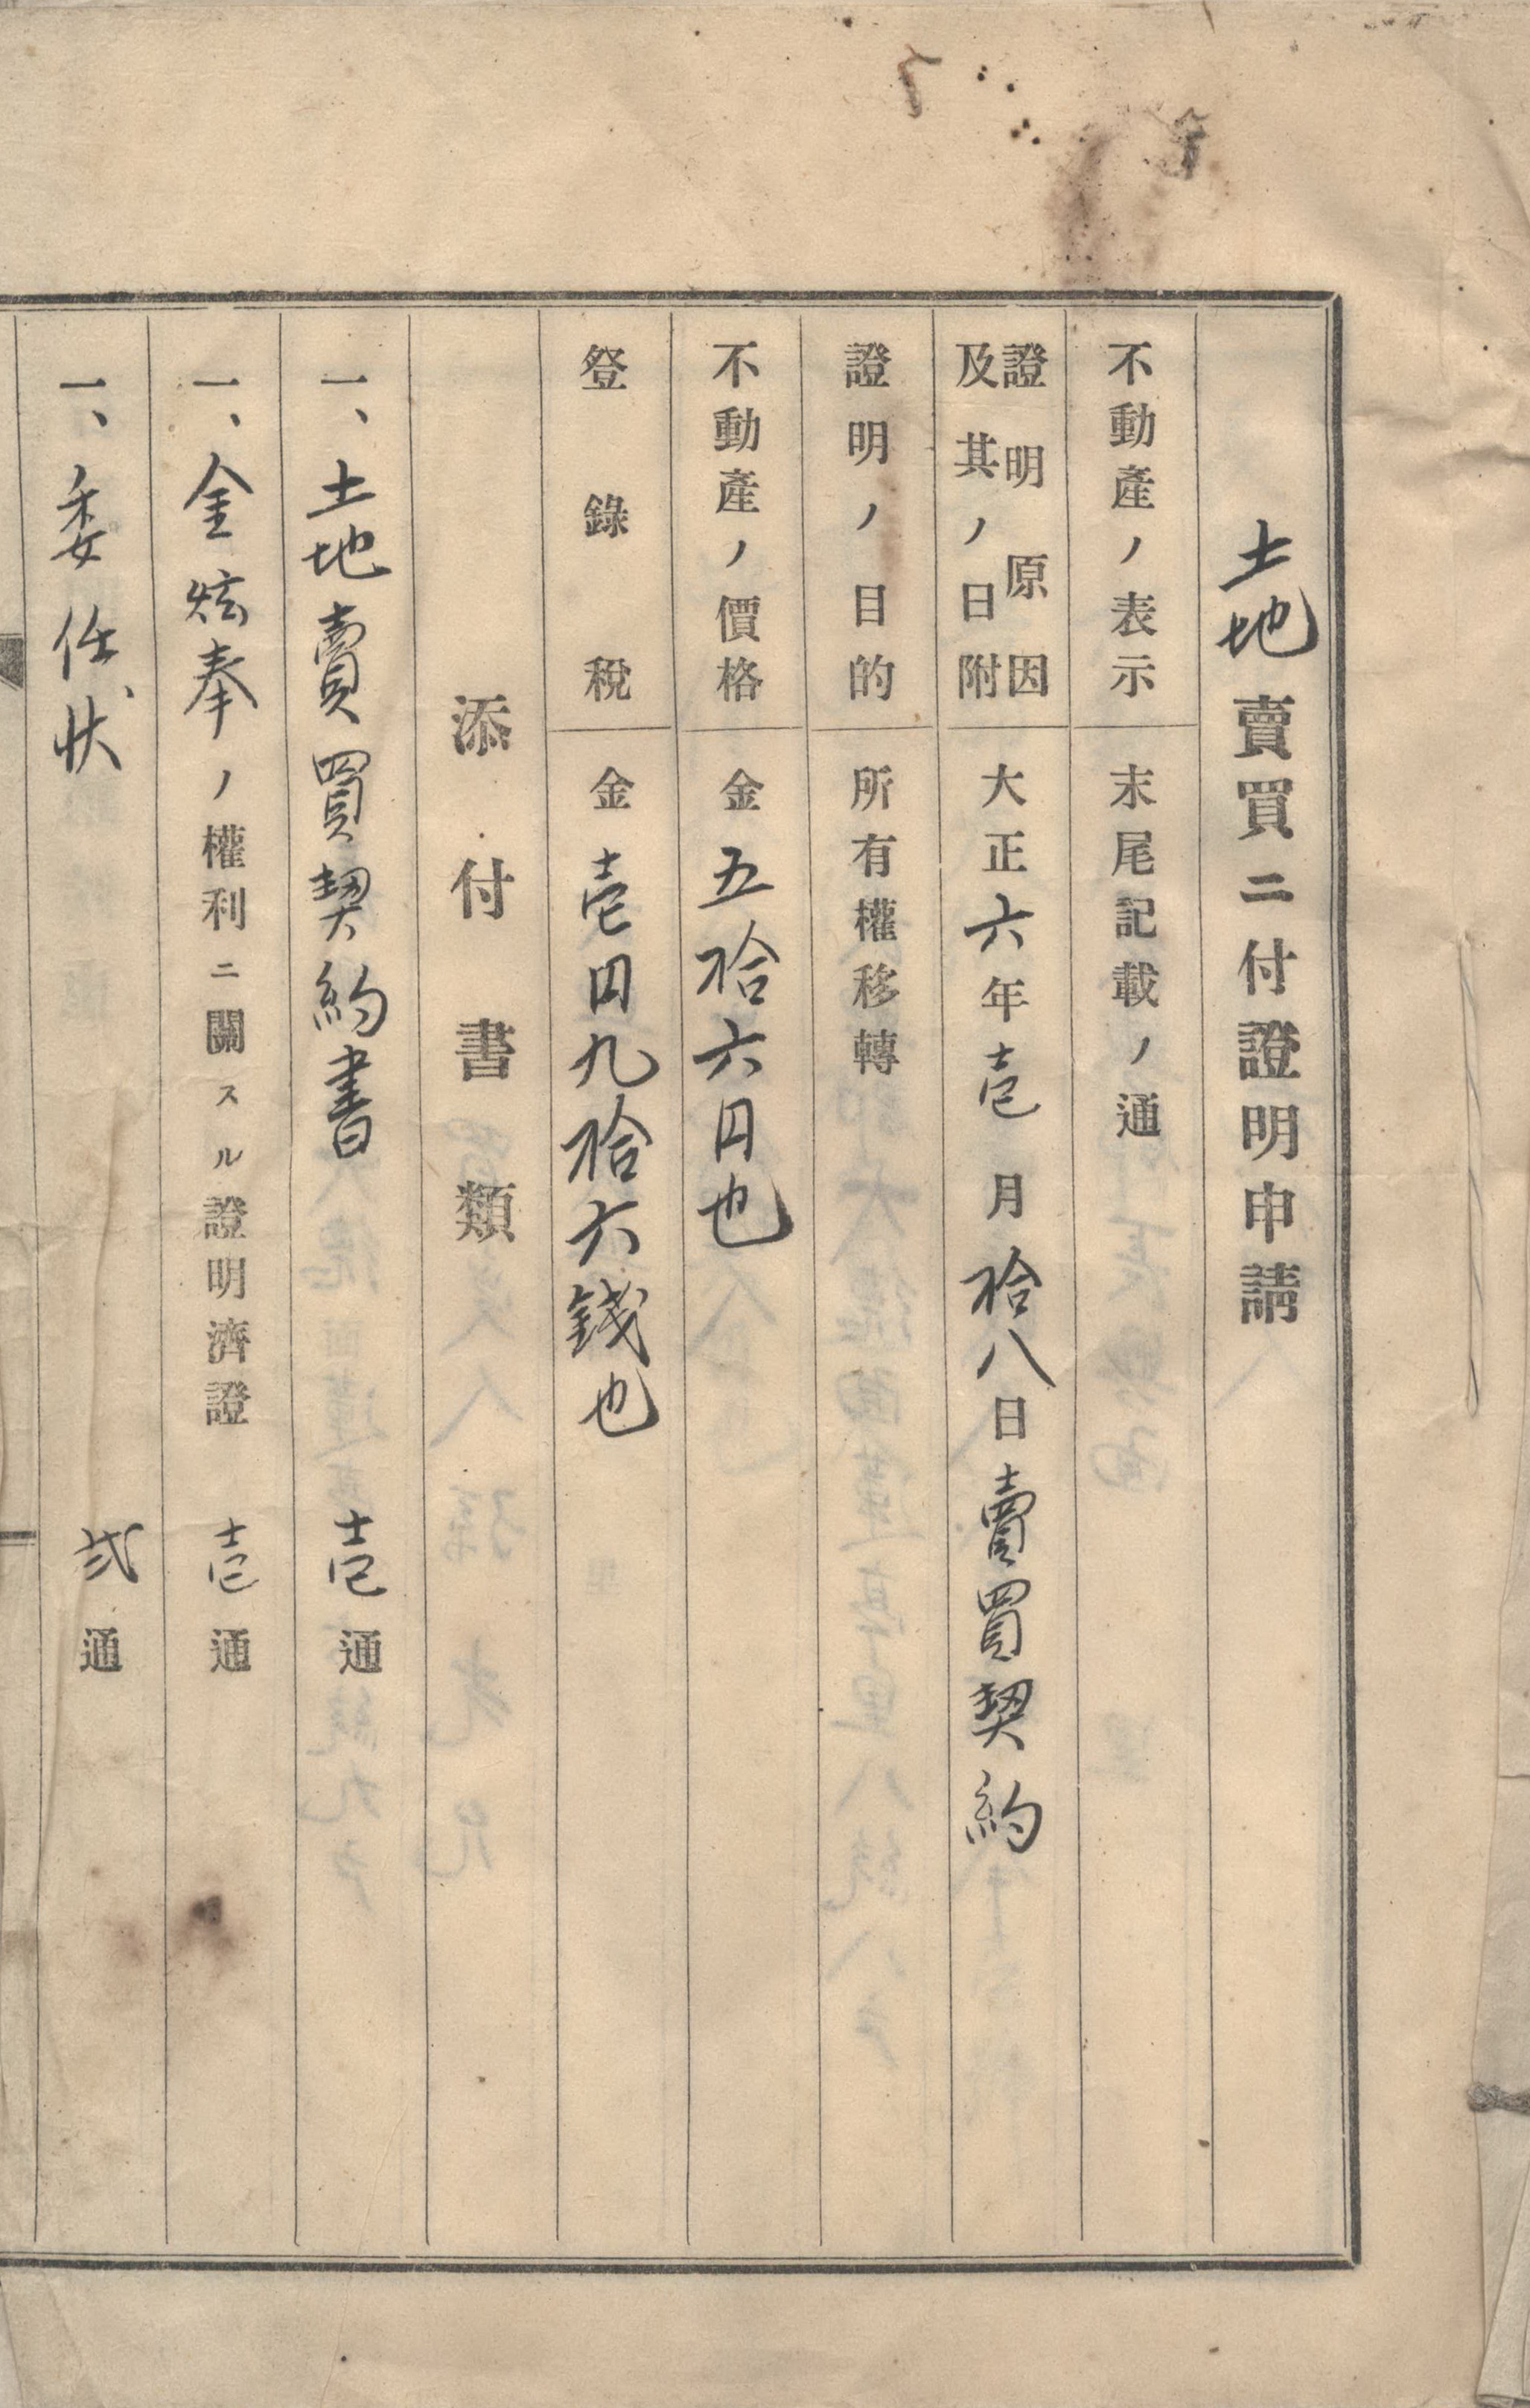 土地賣買ニ付證明申請
不動產ノ表示 末尾記載ノ通
證明原因及其ノ日附 大正六年壱月拾八日賣買契約
證明ノ目的 所有權移轉
不動產ノ價格 金五拾六円也
登錄稅 金壱円九拾六錢也
添付書類
一、土地賣買契約書 壱通
一、金炫奉ノ權利ニ關スル證明濟證 壱通
一、委任状 弐通